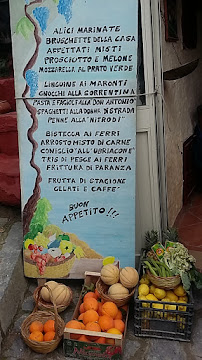 ALICI MARINATE
BRUSCHETTE DELLA CASA
AFFETTATI MISTI
PROSCIUTTO E MELONE
MOZZARELLA AL PRATO VERDE
LINGUINE AI MARONTI
GNOCCHI ALLA SORRENTINA
PASTA E FAGIOLI ALLA DON ANTONIO
SPAGHETTI ALLA DONNA'E STRADA
PENNE ALLA "NITRODI"
BISTECCA AI FERRI
ARROSTO MISTO DI CARNE
CONIGLIO "ALL'UBRIACONE"
TRIS DI PESCE AI FERRI
FRITTURA DI PARANZA
FRUTTA DI STAGIONE
GELATI E CAFFE'
BUON
APPETITO!!!